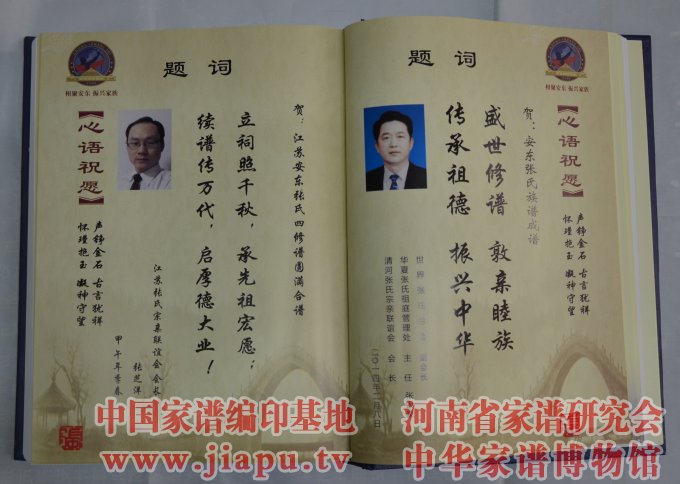 题 词
相聚安东 振兴家族
【心语祝愿】
声铮金石 古言犹祥
怀瑾抱玉 凝神守望
贺：江苏安东张氏四修谱圆满合谱
立祠照千秋，承先祖宏愿；
续谱传万代，启厚德大业！
江苏张氏宗亲联谊会 会长
张芝洋
甲午年季春
题 词
【心语祝愿】
声铮金石 古言犹祥
怀瑾抱玉 凝神守望
贺：安东张氏族谱成谱
盛世修谱 敦亲睦族
传承祖德 振兴中华
世界张氏 副会长
华夏张氏祖庭管理处 主任 张
清河张氏宗亲联谊会 会长
二〇一四年二月八日
中国家谱编印基地 河南省家谱研究会
www.jiapu.tv 中华家谱博物馆